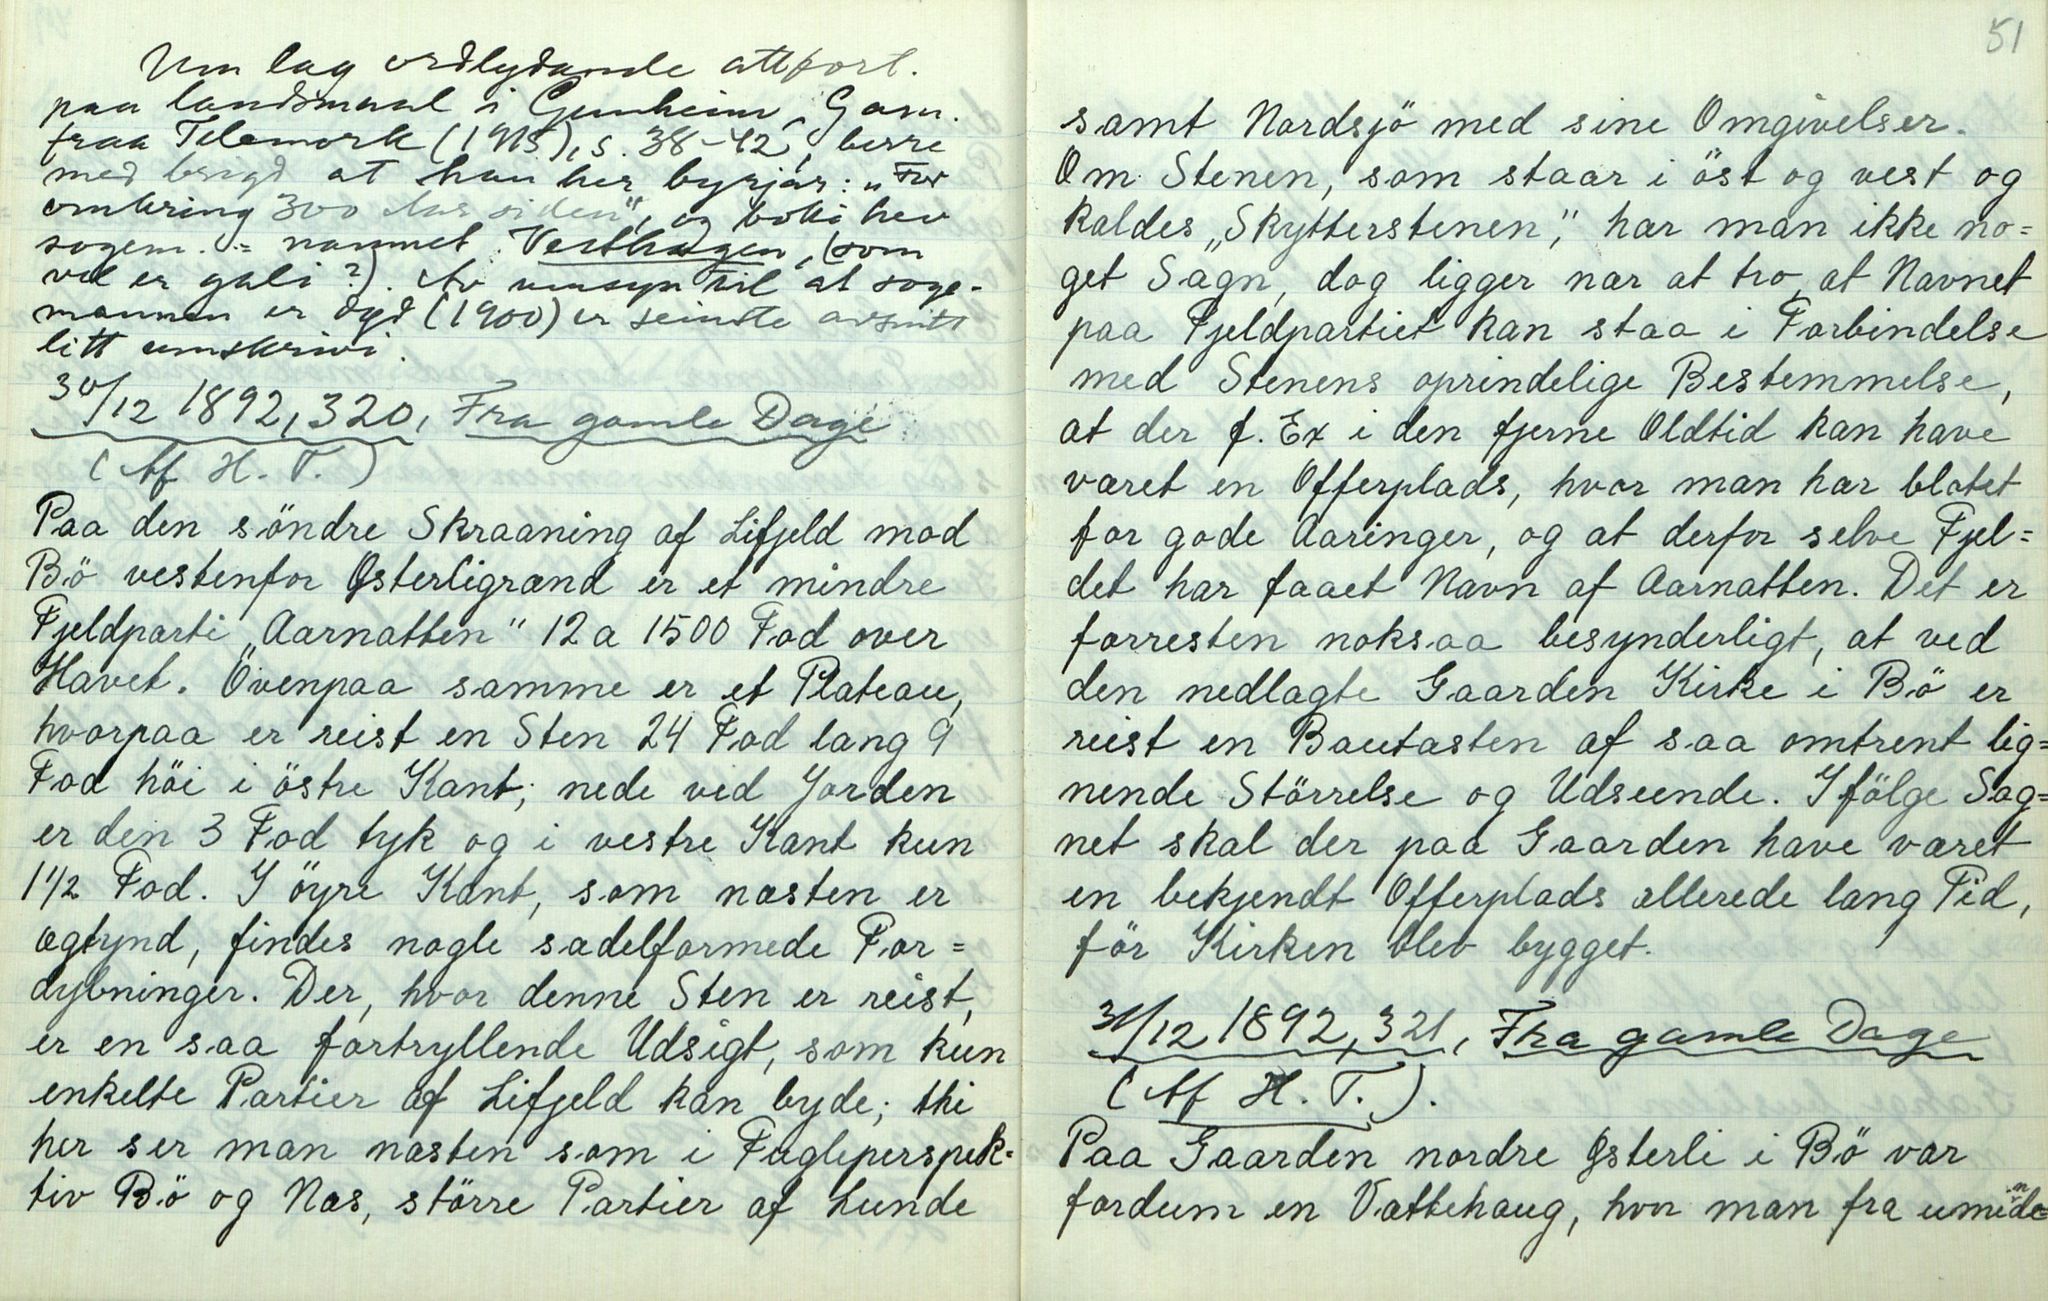 Um lag ordlydande attfort.
paa landsmaal i Gunheim, Gam.
fraa Telemork (1915), s. 38-42, berre
med brigd at han her byrjar: „For
omkring 300 Aar siden", og boki hev
sogem. = namnet Vesthagen, (som
vel er gali?). Av umsyn til at soge-
mannen er dyd (1900) er seinste avsnitt
litt umskrivi.
30/12 1892, 320, Fra gamle Dage
(Af H. T.)
Paa den söndre Skraaning af Lifjeld mod
Bö vestenfor Østerligrænd er et mindre
Fjeldparti „Aarnatten" 12 a 1500 Fod over
Havet. Övenpaa samme er et Plateau,
hvorpaa er reist en Sten 24 Fod lang 9
Fod höi i östre Kant; nede ved Jorden
er den 3 Fod tyk og i vestre Kant kun
1 1/2 Fod. I öyre Kant, som næsten er
ægtynd, findes nogle sadelformede For=
dybninger. Der, hvor denne Sten er reist,
er en saa fortryllende Udsigt, som kun
enkelte Partier af Lifjeld kan byde; thi
her ser man næsten som i Fugleperspek-
tiv Bö og Næs, större Partier af Lunde
51
samt Nordsjö med sine Omgivelser.
Om Stenen, som staar i öst og vest og
kaldes „Skytterstenen", har man ikke no=
get Sagn, dog ligger nær at tro, at Navnet
paa Fjeldpartiet kan staa i Forbindelse
med Stenens oprindelige Bestemmelse,
at der f. Ex i den fjerne Oldtid kan have
været en Offerplads, hvor man har blotet
for gode Aaringer, og at derfor selve Fjel=
det har faaet Navn af Aarnatten. Det er
forresten noksaa besynderligt, at ved
den nedlagte Gaarden Kirke i Bö er
reist en Bautasten af saa omtrent lig=
nende Störrelse og Udseende. Ifölge Sag=
net skal der paa Gaarden have været
en bekjendt Offerplads allerede lang Tid,
för Kirken blev bygget.
31/12 1892, 321, Fra gamle Dage
(Af H. T.).
Paa Gaarden nordre Østerli i Bö var
fordum en Vættehaug, hvor man fra uminde=